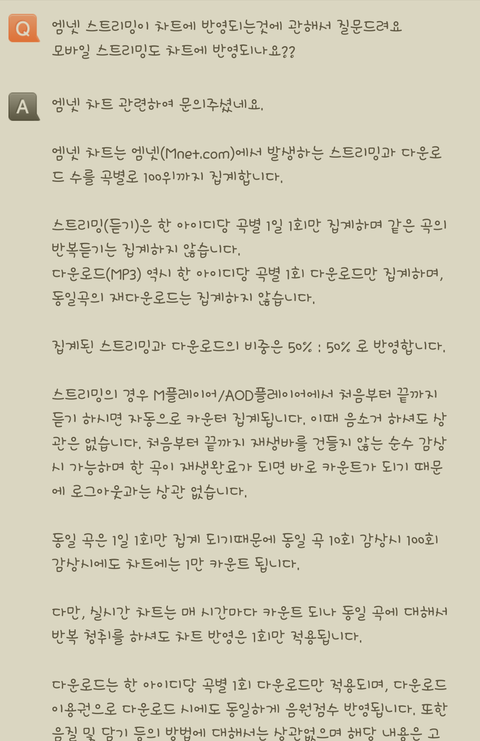 Q 엠넷 스트리밍이 차트에 반영되는것에 관해서 질문드려요
모바일 스트리밍도 차트에 반영되나요??
A 엠넷 차트 관련하여 문의주셨네요.
엠넷 차트는 엠넷(Mnet.com)에서 발생하는 스트리밍과 다운로
드 수를 곡별로 100위까지 집계합니다.
스트리밍(듣기)은 한 아이디당 곡별 1일 1회만 집계하며 같은 곡의
반복듣기는 집계하지 않습니다.
다운로드(MP3) 역시 한 아이디당 곡별 1회 다운로드만 집계하며,
동일곡의 재다운로드는 집계하지 않습니다.
집계된 스트리밍과 다운로드의 비중은 50% : 50% 로 반영합니다.
스트리밍의 경우 M플레이어/AOD플레이어에서 처음부터 끝까지
듣기 하시면 자동으로 카운터 집계됩니다. 이때 음소거 하셔도 상
관은 없습니다. 처음부터 끝까지 재생바를 건들지 않는 순수 감상
시 가능하며 한 곡이 재생완료가 되면 바로 카운트가 되기 때문
에 로그아웃과는 상관 없습니다.
동일 곡은 1일 1회만 집계 되기때문에 동일 곡 10회 감상시 100회
감상시에도 차트에는 1만 카운트 됩니다.
다만, 실시간 차트는 매 시간마다 카운트 되나 동일 곡에 대해서
반복 청취를 하셔도 차트 반영은 1회만 적용됩니다.
다운로드는 한 아이디당 곡별 1회 다운로드만 적용되며, 다운로드
이용권으로 다운로드 시에도 동일하게 음원점수 반영됩니다. 또한
음질 및 담기 등의 방법에 대해서는 상관없으며 해당 내용은 고